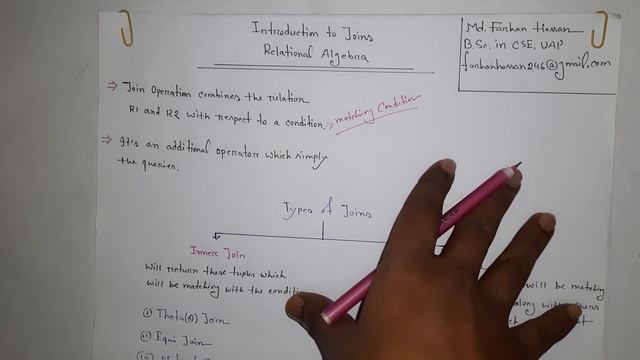 Introduction to Joins
Relational Algebra
Md. Farhan Hossan
B.Sc. in CSE, UAP
farhanhossan246@gmail.com
⇒ Join Operation combines the relation
R1 and R2 with respect to a condition. → matching Condition
⇒ It's an additional operator which simply
the queries.
Types of Joins
Inner Join
Will return those tuples which
will be matching with the
will be matching
along with
① Theta(θ) Join
② Equi Join